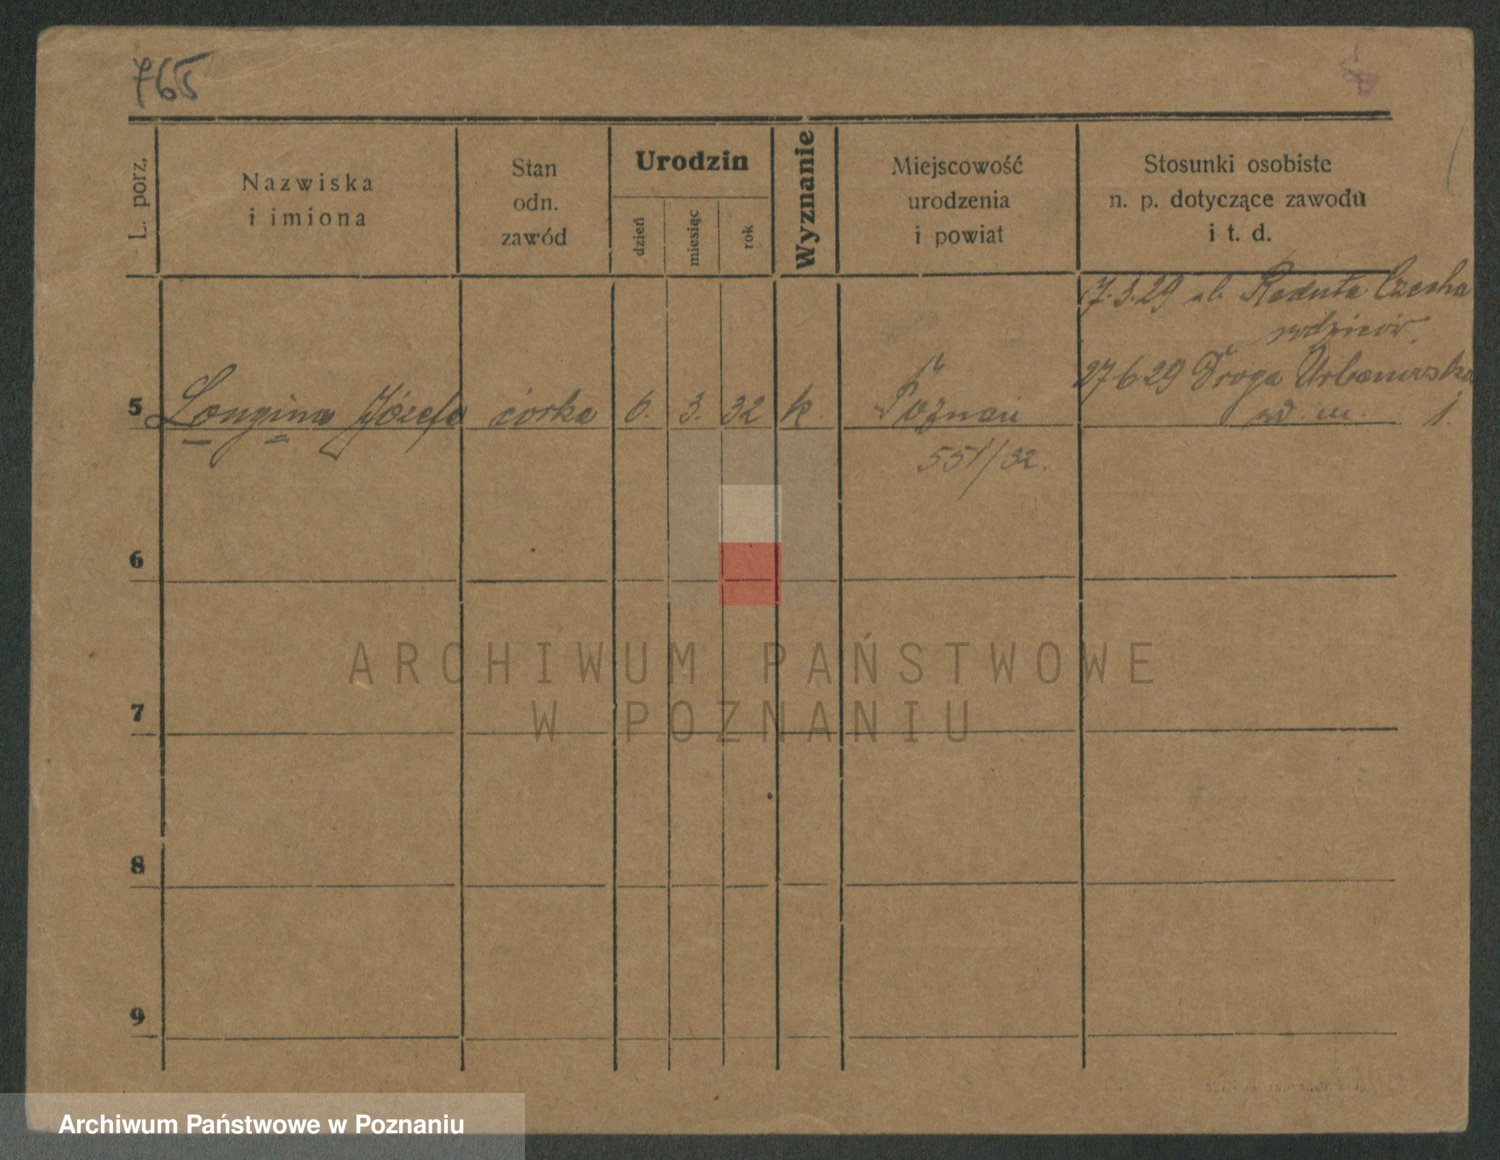 765
L. porz.
Nazwiska
i imiona
Stan
odn.
zawód
Urodzin
dzień
miesiąc
rok
Wyznanie
Miejscowość
urodzenia
i powiat
Stosunki osobiste
n. p. dotyczące zawodu
i t. d.
17.3.29 ul. Reduta Czeska
rodziców.
27 6 29 Droga Urbanowska
5 Longina Józefa córka 6. 3. 32 k. Poznań
551/32.
6
ARCHIWUM PAŃSTWOWE
W POZNANIU
7
8
9
Archiwum Państwowe w Poznaniu